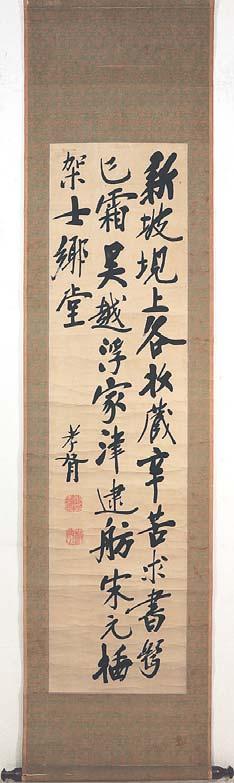 新坡規上各收藏辛苦求書鬢
已霜吳越浮家津逮舫宋元插
架士鄉堂
孝胥